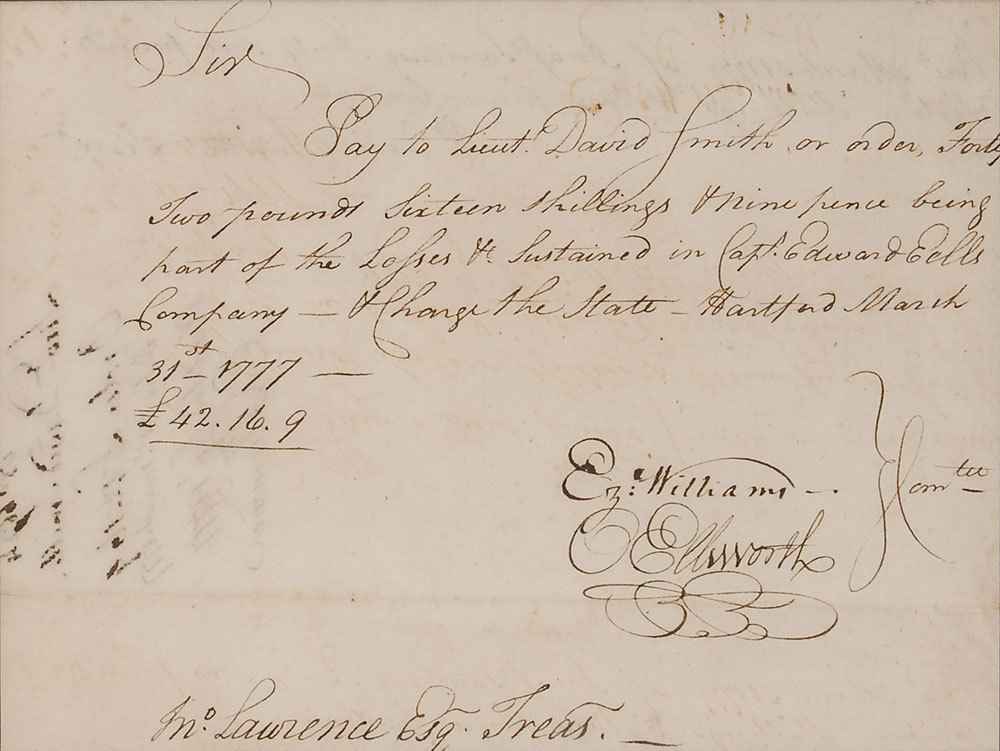 Sir
Pay to Lieut. David Smith or order, Forty
Two pounds Sixteen shillings & Nine pence being
part of the Losses &c Sustained in Capt. Edward Eells
Company — & Charge the State — Hartford March
31st — 1777 —
£ 42. 16. 9
Ezl. Williams —
O Ellsworth
} Comtee
Jno. Lawrence Esq. Treas. —